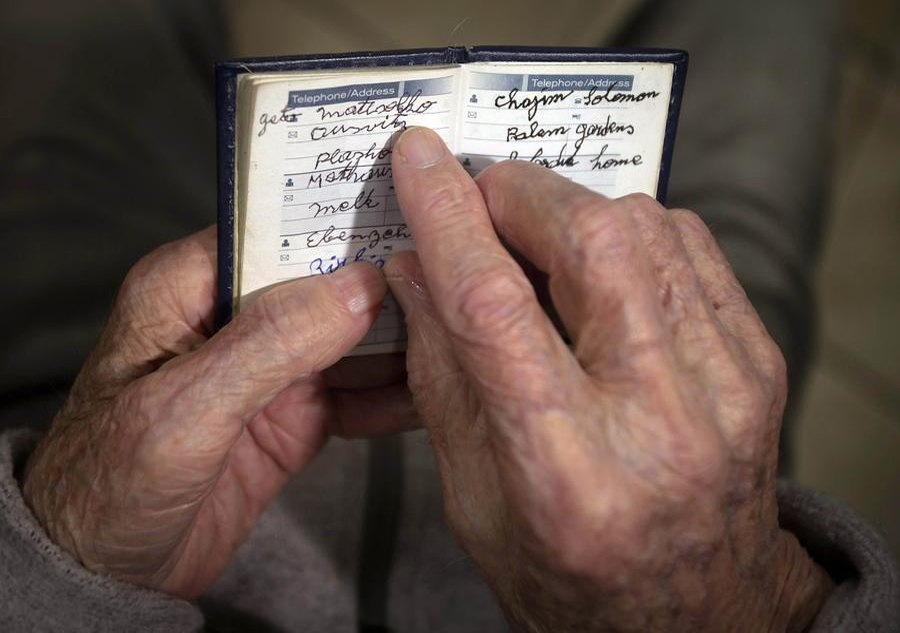 Telephone/Address
geto
Ausvitz
Plazho
Mathaus
Melk
Ebenzeh
Telephone/Address
Chayim Solomon
Palem gardens
home